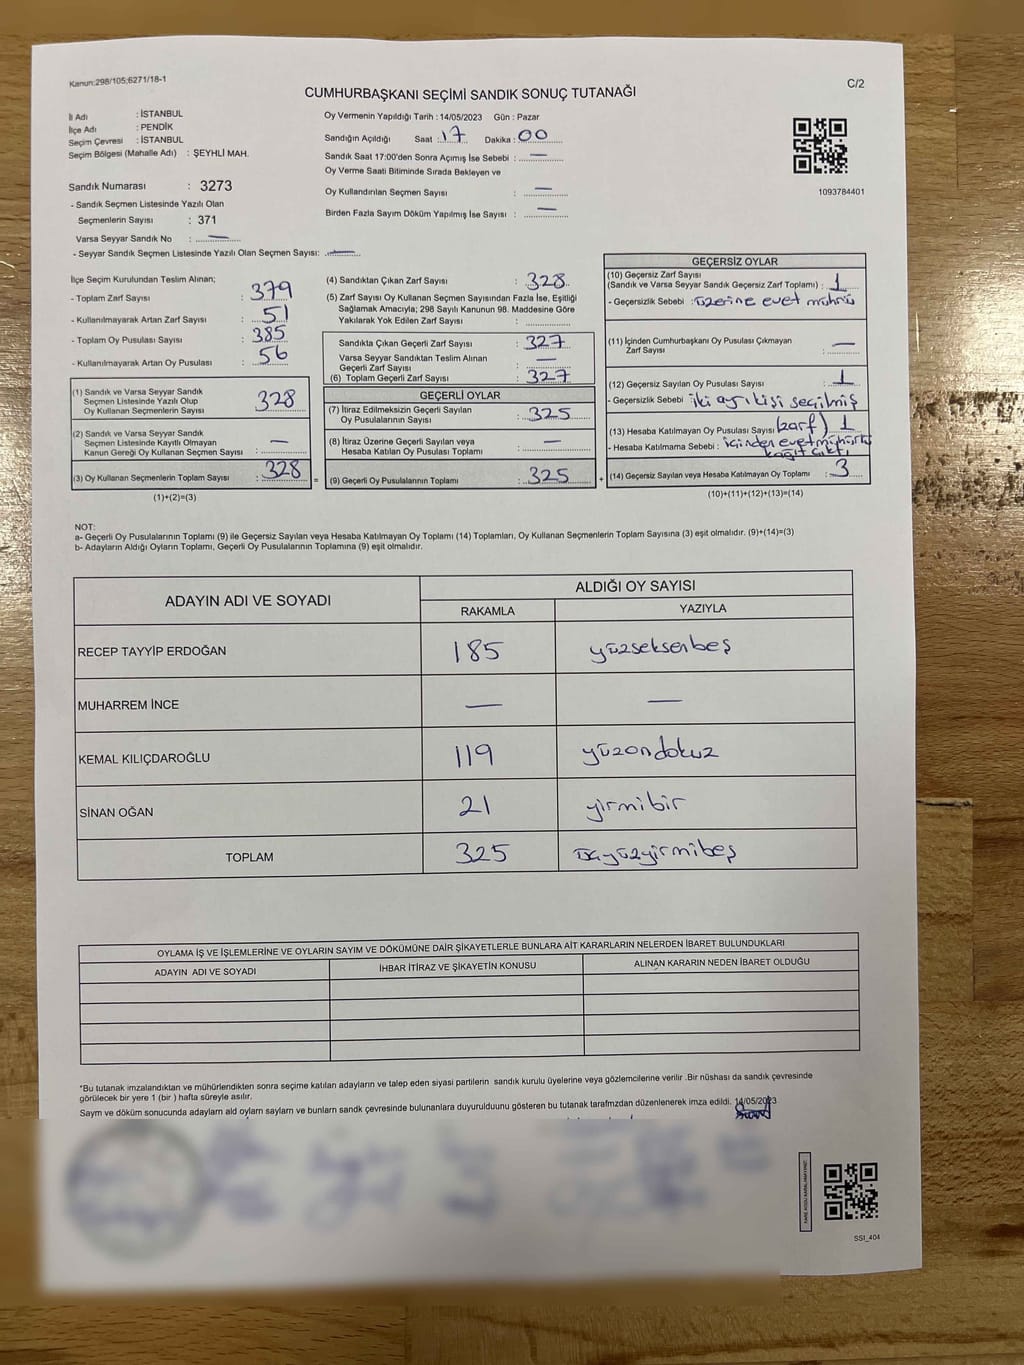 Kanun:298/105;6271/18-1
C/2
CUMHURBAŞKANI SEÇİMİ SANDIK SONUÇ TUTANAĞI
İl Adı : İSTANBUL
İlçe Adı : PENDİK
Seçim Çevresi : İSTANBUL
Seçim Bölgesi (Mahalle Adı) : ŞEYHLİ MAH.
Sandık Numarası : 3273
- Sandık Seçmen Listesinde Yazılı Olan
Seçmenlerin Sayısı : 371
Varsa Seyyar Sandık No : —
- Seyyar Sandık Seçmen Listesinde Yazılı Olan Seçmen Sayısı: —
Oy Vermenin Yapıldığı Tarih : 14/05/2023 Gün : Pazar
Sandığın Açıldığı Saat : 17 Dakika : 00
Sandık Saat 17:00'den Sonra Açımış İse Sebebi : —
Oy Verme Saati Bitiminde Sırada Bekleyen ve
Oy Kullandırılan Seçmen Sayısı : —
Birden Fazla Sayım Döküm Yapılmış İse Sayısı : —
1093784401
İlçe Seçim Kurulundan Teslim Alınan;
- Toplam Zarf Sayısı : 379
- Kullanılmayarak Artan Zarf Sayısı : 51
- Toplam Oy Pusulası Sayısı : 385
- Kullanılmayarak Artan Oy Pusulası : 56
(1) Sandık ve Varsa Seyyar Sandık
Seçmen Listesinde Yazılı Olup
Oy Kullanan Seçmenlerin Sayısı : 328
(2) Sandık ve Varsa Seyyar Sandık
Seçmen Listesinde Kayıtlı Olmayan
Kanun Gereği Oy Kullanan Seçmen Sayısı : —
(3) Oy Kullanan Seçmenlerin Toplam Sayısı : 328 =
(1)+(2)=(3)
(4) Sandıktan Çıkan Zarf Sayısı : 328
(5) Zarf Sayısı Oy Kullanan Seçmen Sayısından Fazla İse, Eşitliği
Sağlamak Amacıyla; 298 Sayılı Kanunun 98. Maddesine Göre
Yakılarak Yok Edilen Zarf Sayısı :
Sandıkta Çıkan Geçerli Zarf Sayısı : 327
Varsa Seyyar Sandıktan Teslim Alınan
Geçerli Zarf Sayısı : —
(6) Toplam Geçerli Zarf Sayısı : 327
GEÇERLİ OYLAR
(7) İtiraz Edilmeksizin Geçerli Sayılan
Oy Pusulalarının Sayısı : 325
(8) İtiraz Üzerine Geçerli Sayılan veya
Hesaba Katılan Oy Pusulası Toplamı : —
(9) Geçerli Oy Pusulalarının Toplamı : 325 +
GEÇERSİZ OYLAR
(10) Geçersiz Zarf Sayısı
(Sandık ve Varsa Seyyar Sandık Geçersiz Zarf Toplamı) : 1
- Geçersizlik Sebebi : üzerine evet mührü
(11) İçinden Cumhurbaşkanı Oy Pusulası Çıkmayan
Zarf Sayısı : —
(12) Geçersiz Sayılan Oy Pusulası Sayısı : 1
- Geçersizlik Sebebi : iki ayrı kişi seçilmiş
(13) Hesaba Katılmayan Oy Pusulası Sayısı (zarf) 1
- Hesaba Katılmama Sebebi : içinden evet mühürlü
kağıt çıktı
(14) Geçersiz Sayılan veya Hesaba Katılmayan Oy Toplamı : 3
(10)+(11)+(12)+(13)=(14)
NOT:
a- Geçerli Oy Pusulalarının Toplamı (9) ile Geçersiz Sayılan veya Hesaba Katılmayan Oy Toplamı (14) Toplamları, Oy Kullanan Seçmenlerin Toplam Sayısına (3) eşit olmalıdır. (9)+(14)=(3)
b- Adayların Aldığı Oyların Toplamı, Geçerli Oy Pusulalarının Toplamına (9) eşit olmalıdır.
ADAYIN ADI VE SOYADI ALDIĞI OY SAYISI
RAKAMLA YAZIYLA
RECEP TAYYİP ERDOĞAN 185 yüzseksenbeş
MUHARREM İNCE — —
KEMAL KILIÇDAROĞLU 119 yüzondokuz
SİNAN OĞAN 21 yirmibir
TOPLAM 325 üçyüzyirmibeş
OYLAMA İŞ VE İŞLEMLERİNE VE OYLARIN SAYIM VE DÖKÜMÜNE DAİR ŞİKAYETLERLE BUNLARA AİT KARARLARIN NELERDEN İBARET BULUNDUKLARI
ADAYIN ADI VE SOYADI İHBAR İTİRAZ VE ŞİKAYETİN KONUSU ALINAN KARARIN NEDEN İBARET OLDUĞU
*Bu tutanak imzalandıktan ve mühürlendikten sonra seçime katılan adayların ve talep eden siyasi partilerin sandık kurulu üyelerine veya gözlemcilerine verilir .Bir nüshası da sandık çevresinde
görülecek bir yere 1 (bir ) hafta süreyle asılır.
Sayım ve döküm sonucunda adayların aldı oyların sayların ve bunların sandk çevresinde bulunanlara duyurulduunu gösteren bu tutanak tarafımzdan düzenlenerek imza edildi. 14/05/2023
SS1_404